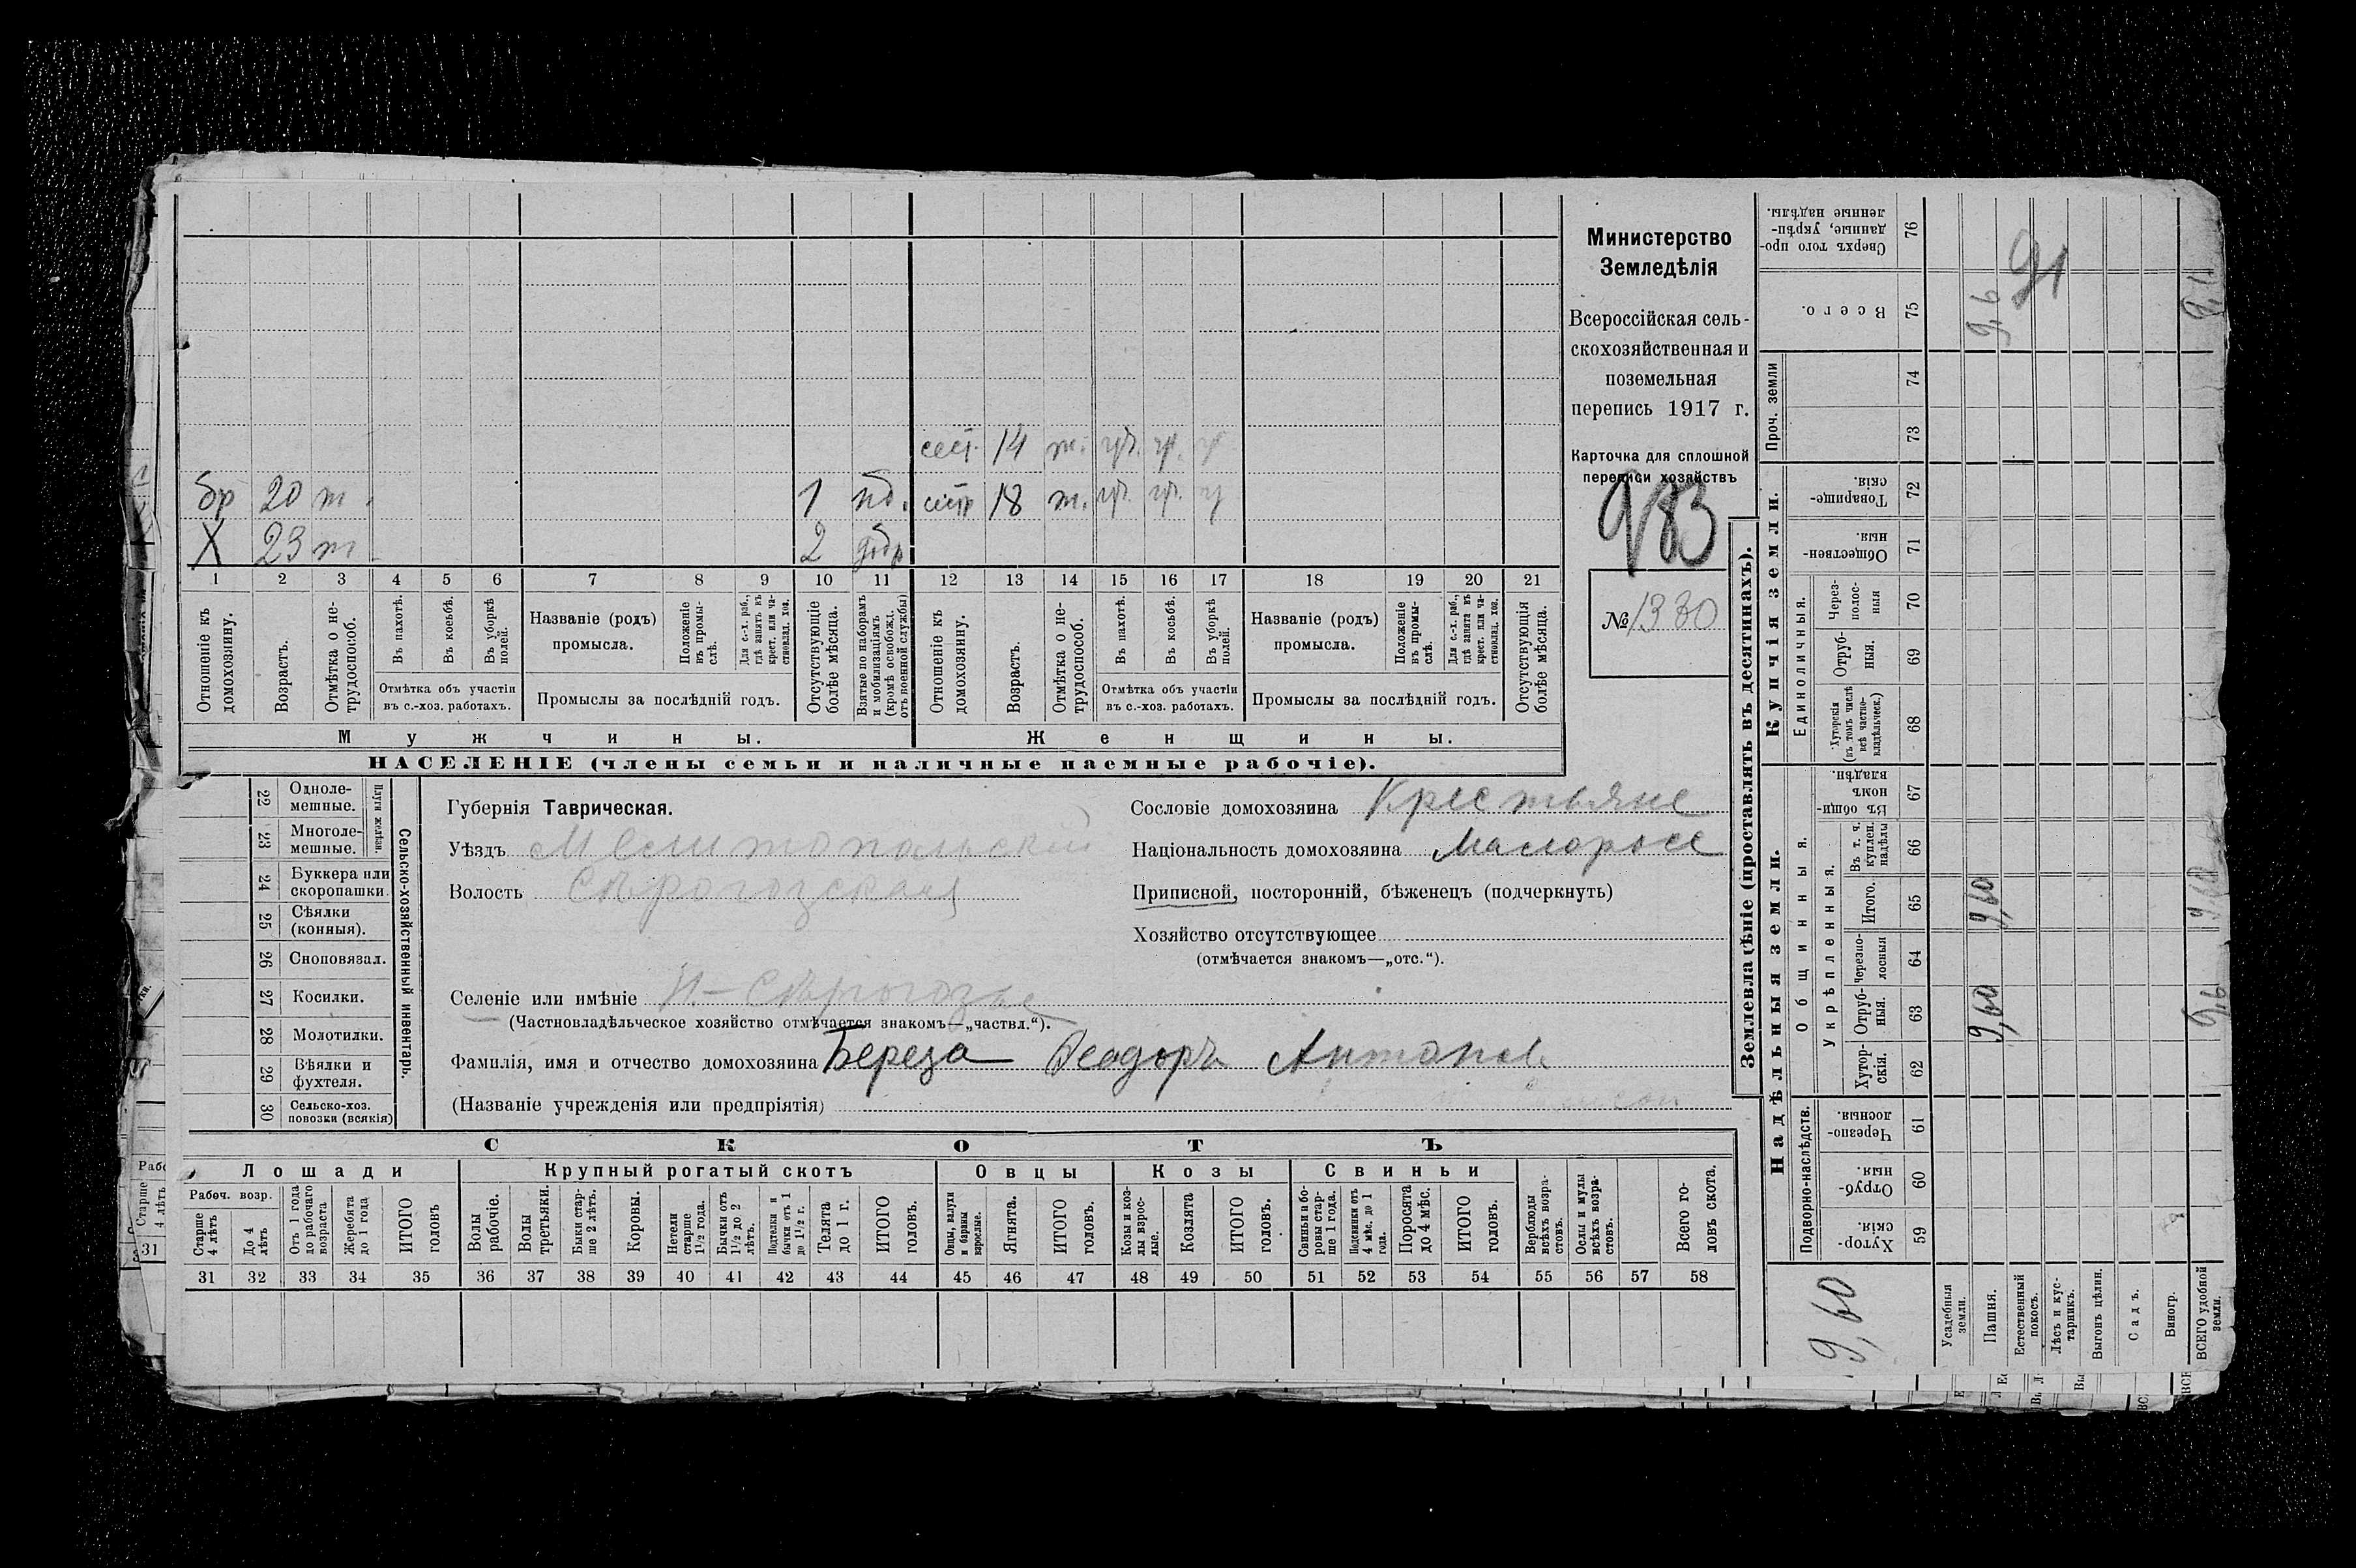 сест. 14 т.
бр 20 т. 1 сестр 18 т.
X 23 т 2
1 2 3 4 5 6 7 8 9 10 11 12 13 14 15 16 17 18 19 20 21
Отношеніе къ домохозяину.
Возрастъ.
Отмѣтка о не-трудоспособ.
Въ пахотѣ.
Въ косьбѣ.
Въ уборкѣ полей.
Отмѣтка объ участіи
въ с.-хоз. работахъ.
Названіе (родъ)
промысла.
Положеніе въ промы-слѣ.
Для с.-х. раб., гдѣ занятъ въ крест. или ча-стновлад. хоз.
Промыслы за послѣдній годъ.
Отсутствующіе болѣе мѣсяца.
Взятые по наборамъ и мобилизаціямъ (кромѣ освобожд. отъ военной службы)
Отношеніе къ домохозяину.
Возрастъ.
Отмѣтка о не-трудоспособ.
Въ пахотѣ.
Въ косьбѣ.
Въ уборкѣ полей.
Отмѣтка объ участіи
въ с.-хоз. работахъ.
Названіе (родъ)
промысла.
Положеніе въ промы-слѣ.
Для с.-х. раб., гдѣ занята въ крест. или ча-стновлад. хоз.
Промыслы за послѣдній годъ.
Отсутствующія болѣе мѣсяца.
Мужчины.
Женщины.
НАСЕЛЕНІЕ (члены семьи и наличные наемные рабочіе).
Министерство
Земледѣлія
Всероссійская сель-
скохозяйственная и
поземельная
перепись 1917 г.
Карточка для сплошной
переписи хозяйствъ
983
№ 1330
22 Одноле-мешные.
23 Многоле-мешные.
Плуги желѣзн.
24 Буккера или скоропашки.
25 Сѣялки (конныя).
26 Сноповязал.
27 Косилки.
28 Молотилки.
29 Вѣялки и фухтеля.
30 Сельско-хоз. повозки (всякія)
Сельско-хозяйственный инвентарь.
Губернія Таврическая.
Уѣздъ Мелитопольскій
Волость Сѣрогозская
Селеніе или имѣніе Н-Сѣрогозы
(Частновладѣльческое хозяйство отмѣчается знакомъ—„частвл.“).
Фамилія, имя и отчество домохозяина Береза Ѳеодоръ Антонов
(Названіе учрежденія или предпріятія)
Сословіе домохозяина Крестьяне
Національность домохозяина Малоросс
Приписной, посторонній, бѣженецъ (подчеркнуть)
Хозяйство отсутствующее
(отмѣчается знакомъ—„отс.“).
СКОТЪ
Лошади
Крупный рогатый скотъ
Овцы
Козы
Свиньи
Рабоч. возр.
Старше 4 лѣтъ
До 4 лѣтъ
Отъ 1 года до рабочаго возраста
Жеребята до 1 года
ИТОГО головъ
Волы рабочіе.
Волы третьяки.
Быки стар-ше 2 лѣтъ.
Коровы.
Нетели старше 1½ года.
Бычки отъ 1½ до 2 лѣтъ.
Подтелки и бычки отъ 1 до 1½ г.
Телята до 1 г.
ИТОГО головъ.
Овцы, валухи и бараны взрослые.
Ягнята.
ИТОГО головъ.
Козы и коз-лы взрос-лые.
Козлята
ИТОГО головъ.
Свиньи и бо-ровы стар-ше 1 года.
Подсвинки отъ 4 мѣс. до 1 года.
Поросята до 4 мѣс.
ИТОГО головъ.
Верблюды всѣхъ возра-стовъ.
Ослы и мулы всѣхъ возра-стовъ.
Всего го-ловъ скота.
31 32 33 34 35 36 37 38 39 40 41 42 43 44 45 46 47 48 49 50 51 52 53 54 55 56 57 58
Землевладѣніе (проставлять въ десятинахъ).
Надѣльныя земли.
Купчія земли.
Проч. земли
Подворно-наслѣдств.
Общинныя.
Укрѣпленныя.
Единоличныя.
Хутор-скія. 59
Отруб-ныя. 60
Черезпо-лосныя. 61
Хутор-скія. 62
Отруб-ныя. 63
Черезпо-лосныя 64
Итого. 65
Въ т. ч. куплен. надѣлы 66
Въ общи-номъ владѣн. 67
Хуторскія (въ томъ числѣ всѣ частно-владѣльческ.) 68
Отруб-ныя. 69
Через-полос-ныя 70
Обществен-ныя. 71
Товарище-скія. 72
73
74
Всего. 75
Сверхъ того про-данные, укрѣп-ленные надѣлы. 76
Усадебныя земли.
Пашня.
Естественный покосъ.
Лѣсъ и кус-тарникъ.
Выгонъ цѣлин.
Садъ.
Виногр.
ВСЕГО удобной земли.
9,60
9,60
9,60
9,6
91
9,6